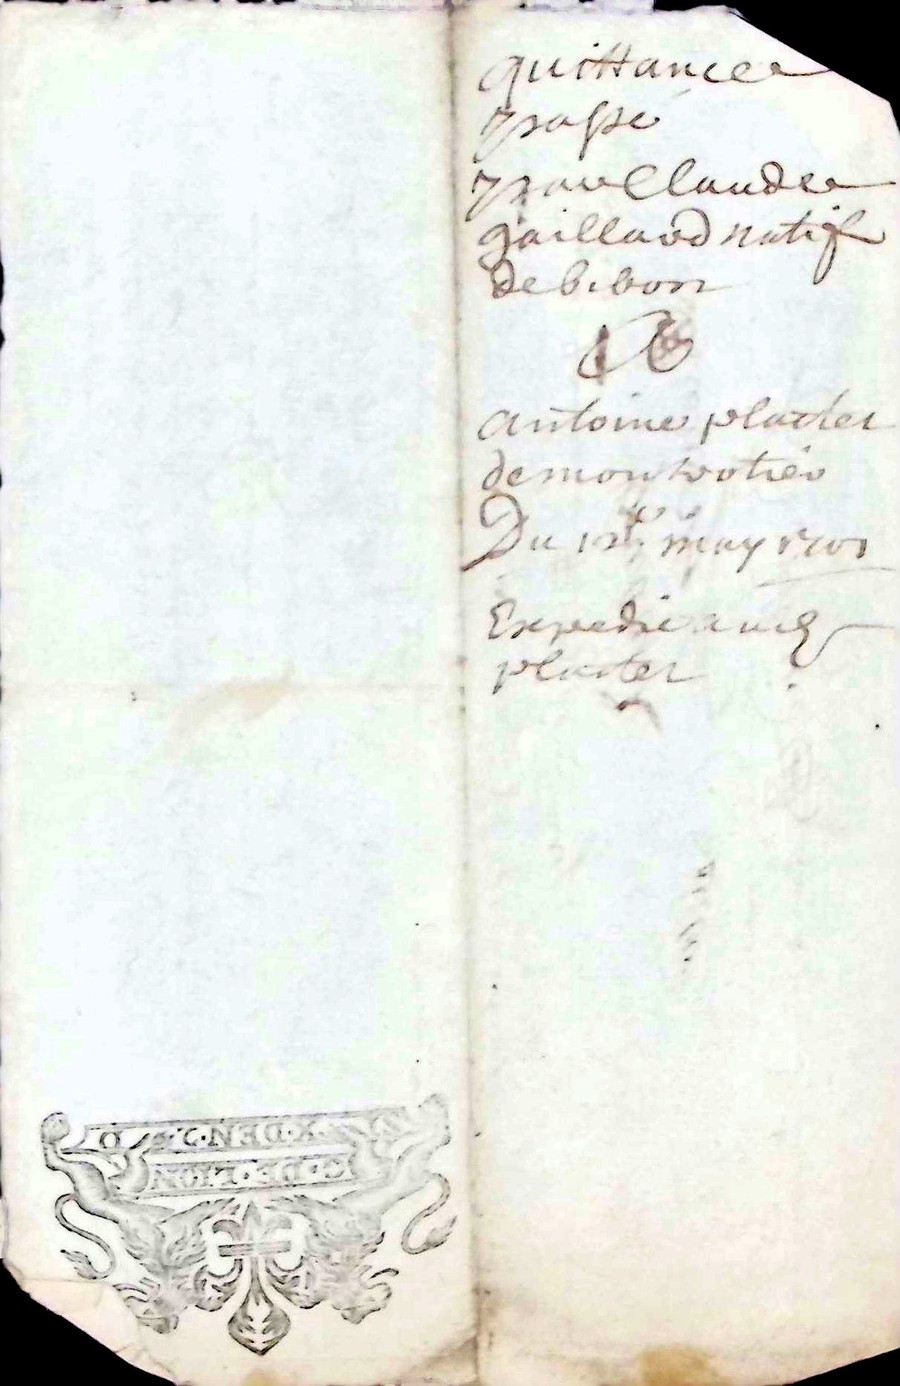 quittance
passé
par Claude
gaillard natif
de bibon
A
antoine platter
de montrotier
Du 12e may 1701
Expedie audt
platter